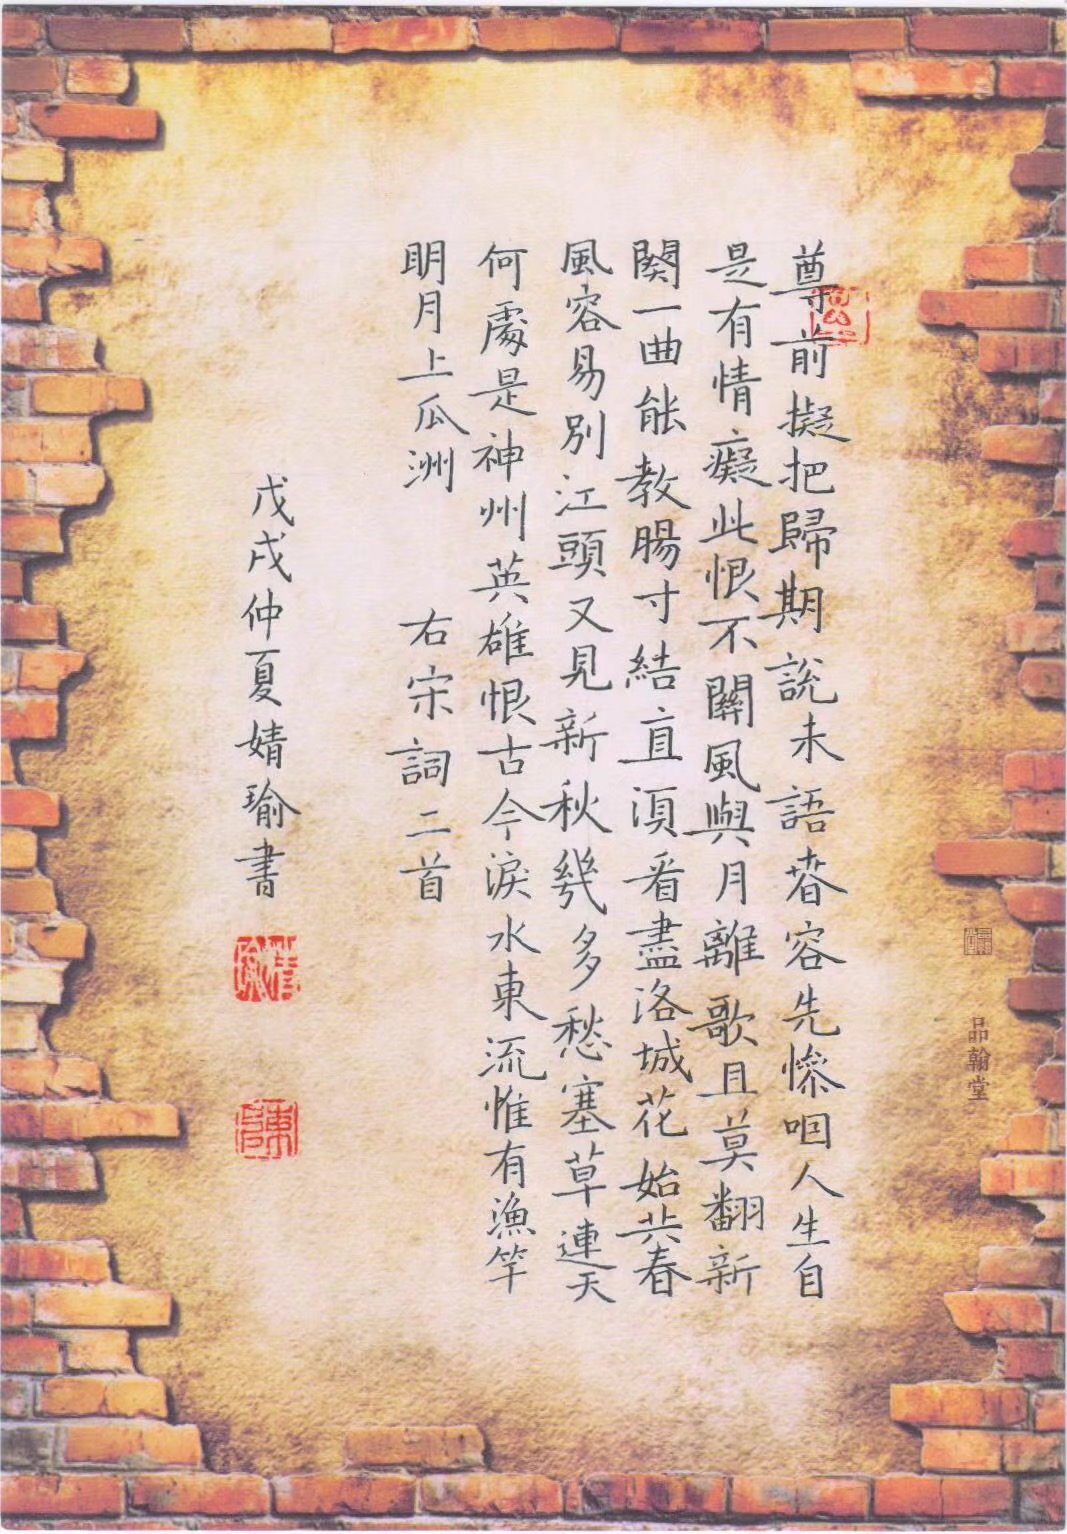 尊前擬把歸期說未語春容先慘咽人生自
是有情癡此恨不關風與月離歌且莫翻新
闋一曲能教腸寸結直須看盡洛城花始共春
風容易別江頭又見新秋幾多愁塞草連天
何處是神州英雄恨古今淚水東流惟有漁竿
明月上瓜洲 右宋詞二首
戊戌仲夏婧瑜書
品翰堂